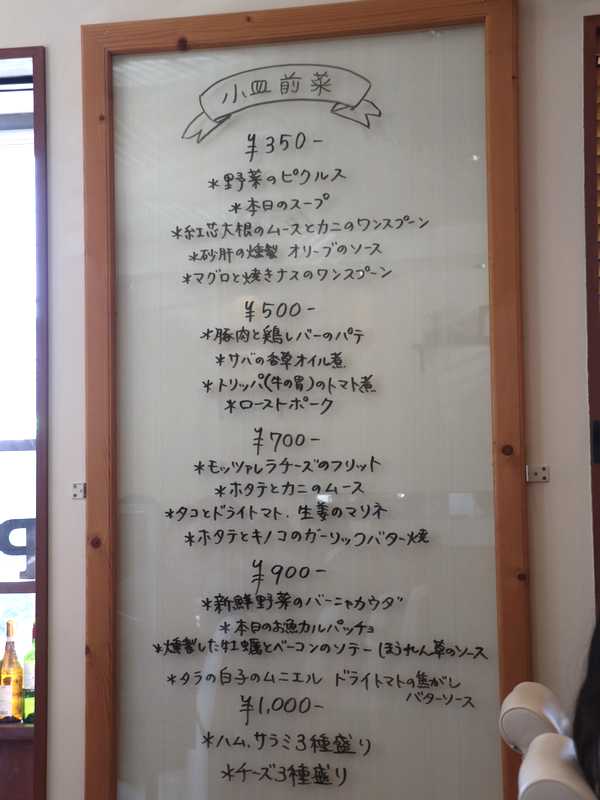 小皿前菜
¥350-
*野菜のピクルス
*本日のスープ
*紅芯大根のムースとカニのワンスプーン
*砂肝の燻製 オリーブのソース
*マグロと焼きナスのワンスプーン
¥500-
*豚肉と鶏レバーのパテ
*サバの香草オイル煮
*トリッパ(牛の胃)のトマト煮
*ローストポーク
¥700-
*モッツァレラチーズのフリット
*ホタテとカニのムース
*タコとドライトマト、生姜のマリネ
*ホタテとキノコのガーリックバター焼
¥900-
*新鮮野菜のバーニャカウダ
*本日のお魚カルパッチョ
*燻製した牡蠣とベーコンのソテー ほうれん草のソース
*タラの白子のムニエル ドライトマトの焦がし
バターソース
¥1,000-
*ハム、サラミ3種盛り
*チーズ3種盛り
P